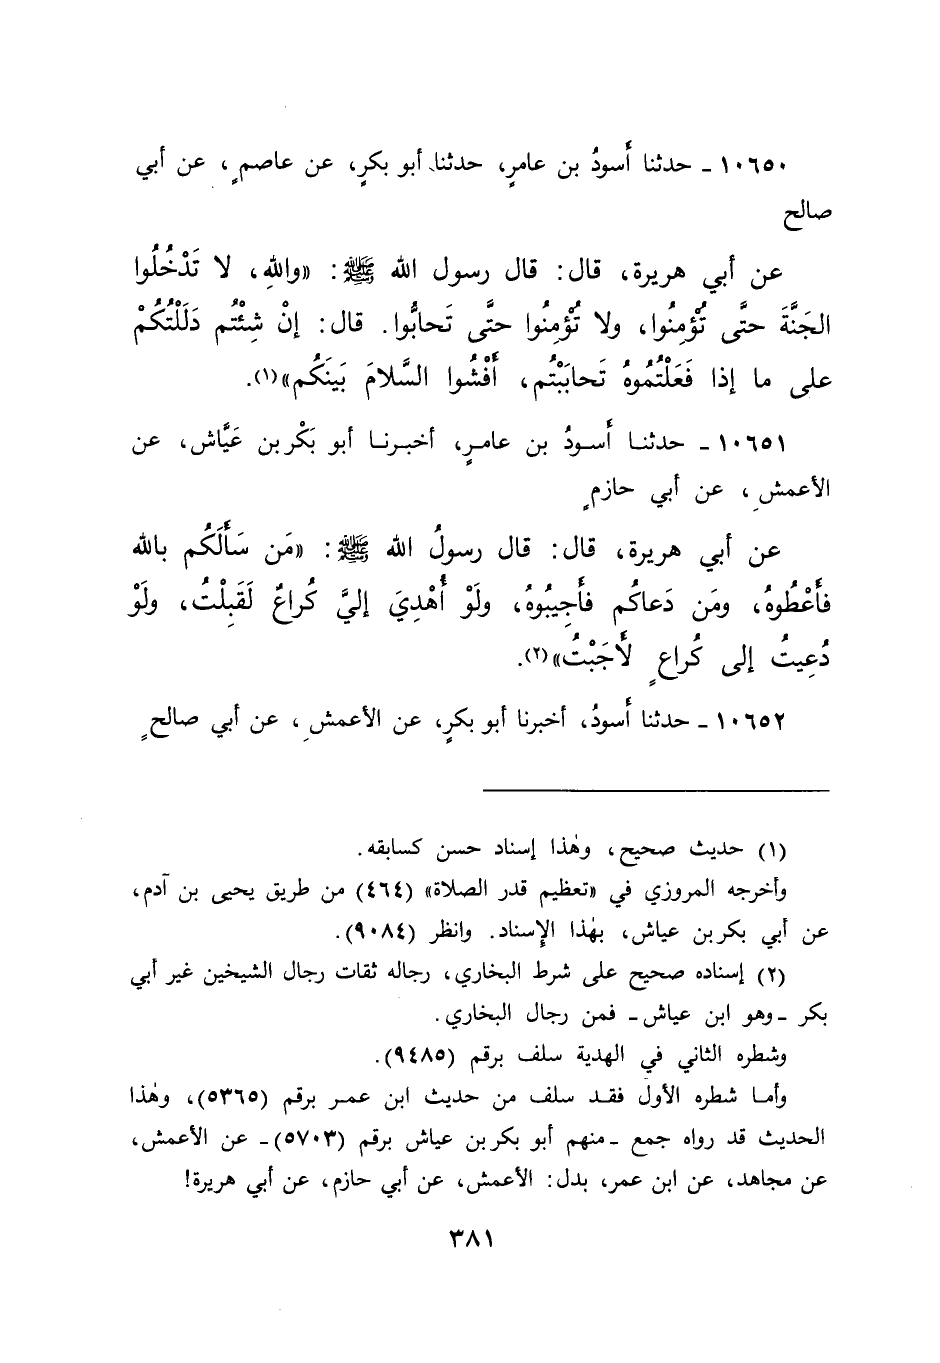 ١٠٦٥٠ ـ حدثنا أَسودُ بن عامرٍ، حدثنا أبو بكرٍ، عن عاصمٍ، عن أبي
صالح
عن أبي هريرة، قال: قال رسول الله ﷺ: «واللهِ، لا تَدْخُلُوا
الجَنَّةَ حتَّى تُؤْمِنُوا، ولا تُؤْمِنُوا حتَّى تَحابُّوا. قال: إنْ شِئْتُم دَلَلْتُكُمْ
على ما إذا فَعَلْتُمُوهُ تَحابَبْتُم، أَفْشُوا السَّلامَ بَينَكُم»(١).
١٠٦٥١ ـ حدثنا أَسودُ بن عامرٍ، أخبرنا أبو بَكْر بن عَيَّاش، عن
الأعمشِ، عن أبي حازمٍ
عن أبي هريرة، قال: قال رسولُ الله ﷺ: «مَن سَأَلَكُم بالله
فأَعْطُوهُ، ومَن دَعاكُم فأَجِيبُوهُ، ولَوْ أُهْدِيَ إليَّ كُراعٌ لَقَبِلْتُ، ولَوْ
دُعِيتُ إلى كُراعٍ لأَجَبْتُ»(٢).
١٠٦٥٢ ـ حدثنا أَسودُ، أخبرنا أبو بكرٍ، عن الأعمشِ، عن أبي صالحٍ
(١) حديث صحيح، وهٰذا إسناد حسن كسابقه.
وأخرجه المروزي في «تعظيم قدر الصلاة» (٤٦٤) من طريق يحيى بن آدم،
عن أبي بكر بن عياش، بهٰذا الإسناد. وانظر (٩٠٨٤).
(٢) إسناده صحيح على شرط البخاري، رجاله ثقات رجال الشيخين غير أبي
بكر ـ وهو ابن عياش ـ فمن رجال البخاري.
وشطره الثاني في الهدية سلف برقم (٩٤٨٥).
وأما شطره الأول فقد سلف من حديث ابن عمر برقم (٥٣٦٥)، وهٰذا
الحديث قد رواه جمع ـ منهم أبو بكر بن عياش برقم (٥٧٠٣) ـ عن الأعمش،
عن مجاهد، عن ابن عمر، بدل: الأعمش، عن أبي حازم، عن أبي هريرة!
٣٨١